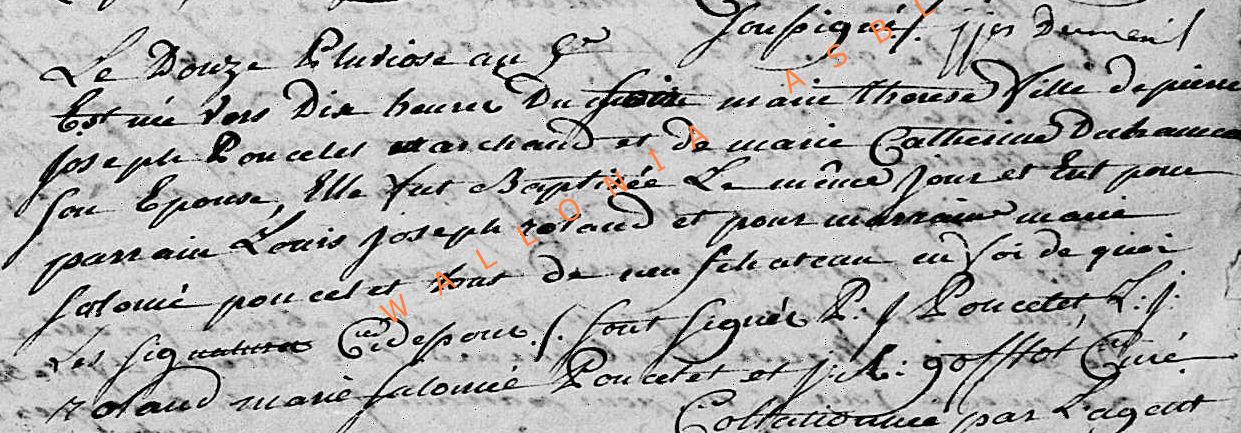 soussigné /. jjos Dumenil
Le Douze Pluviose an 5e
Est née vers Dix heures Du soire marie therese fille de pierre
joseph Poncelet marchand et de marie Catherine
son Epouse, Elle fut Baptisée Le même jour et Eut pour
parrain Louis joseph roland et pour marraine marie
salomé poncelet tous de neufchateau en foi de quoi
Les signatura Cidessous /. sont signés P: j Poncelet, L: j:
roland marie salomée Poncelet et j: goffiot Curé
Collationnée par L'agent
WALLONIA ASBL